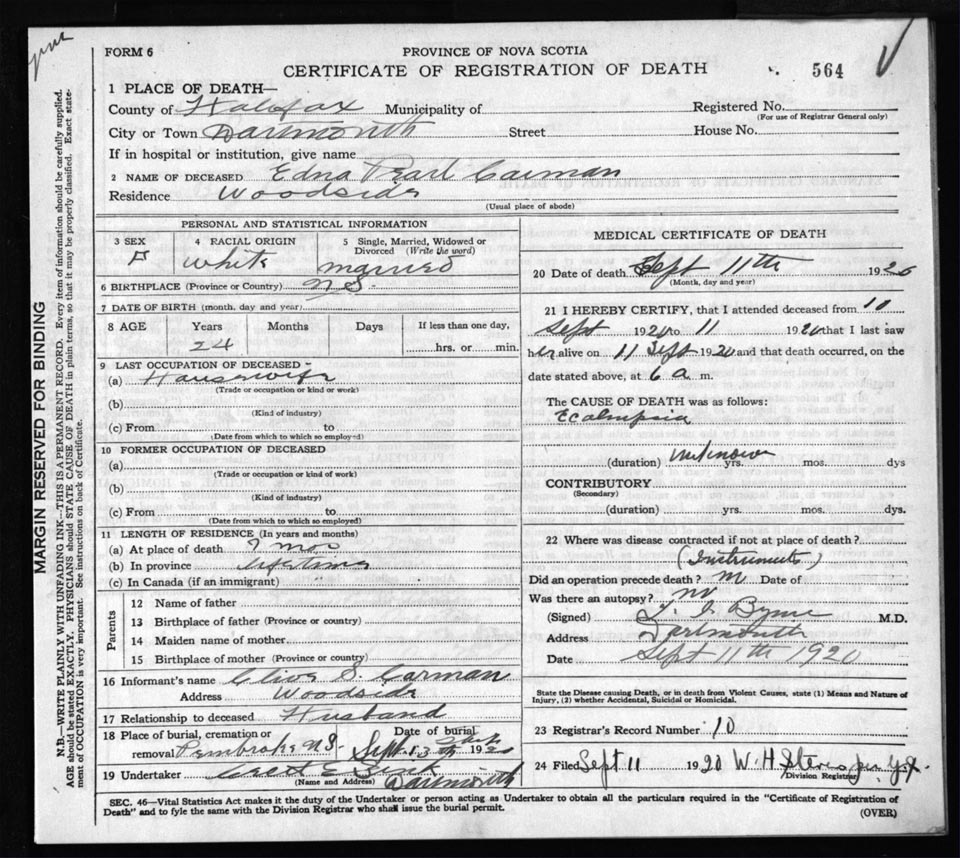 FORM 6
PROVINCE OF NOVA SCOTIA
CERTIFICATE OF REGISTRATION OF DEATH
564
1 PLACE OF DEATH—
County of Halifax Municipality of Registered No.
(For use of Registrar General only)
City or Town Dartmouth Street House No.
If in hospital or institution, give name
2 NAME OF DECEASED Edna Pearl Carman
Residence Woodside
(Usual place of abode)
PERSONAL AND STATISTICAL INFORMATION
3 SEX 4 RACIAL ORIGIN 5 Single, Married, Widowed or Divorced (Write the word)
F White married
6 BIRTHPLACE (Province or Country) N S
7 DATE OF BIRTH (month, day and year)
8 AGE Years Months Days If less than one day,
24 hrs. or min.
9 LAST OCCUPATION OF DECEASED
(a) Housewife
(Trade or occupation or kind or work)
(b)
(Kind of industry)
(c) From to
(Date from which to which so employed)
10 FORMER OCCUPATION OF DECEASED
(a)
(Trade or occupation or kind of work)
(b)
(Kind of industry)
(c) From to
(Date from which to which so employed)
11 LENGTH OF RESIDENCE (In years and months)
(a) At place of death mos
(b) In province lifetime
(c) In Canada (if an immigrant)
Parents
12 Name of father
13 Birthplace of father (Province or country)
14 Maiden name of mother
15 Birthplace of mother (Province or country)
16 Informant's name Clive S. Carman
Address Woodside
17 Relationship to deceased Husband
18 Place of burial, cremation or Date of burial
removal Pembroke N S Sept 13th 1920
19 Undertaker Dartmouth
(Name and Address)
MEDICAL CERTIFICATE OF DEATH
20 Date of death Sept 11th 1920
(Month, day and year)
21 I HEREBY CERTIFY, that I attended deceased from 10
Sept 1920 to 11 1920 that I last saw
her alive on 11 Sept 1920 and that death occurred, on the
date stated above, at 6 a m.
The CAUSE OF DEATH was as follows:
Ecalmpsia
(duration) unknown yrs. mos. dys
CONTRIBUTORY
(Secondary)
(duration) yrs. mos. dys.
22 Where was disease contracted if not at place of death?
(Instruments)
Did an operation precede death? Date of
Was there an autopsy? no
(Signed) Byrne M.D.
Address Dartmouth
Date Sept 11th 1920
State the Disease causing Death, or in death from Violent Causes, state (1) Means and Nature of
Injury, (2) whether Accidental, Suicidal or Homicidal.
23 Registrar's Record Number 10
24 Filed Sept 11 1920 W. H. Stevens
Division Registrar
SEC. 46—Vital Statistics Act makes it the duty of the Undertaker or person acting as Undertaker to obtain all the particulars required in the "Certificate of Registration of
Death" and to fyle the same with the Division Registrar who shall issue the burial permit.
(OVER)
MARGIN RESERVED FOR BINDING
N.B.—WRITE PLAINLY WITH UNFADING INK—THIS IS A PERMANENT RECORD. Every item of information should be carefully supplied.
AGE should be stated EXACTLY. PHYSICIANS should STATE CAUSE OF DEATH in plain terms, so that it may be properly classified. Exact state-
ment of OCCUPATION is very important. See instructions on back of Certificate.